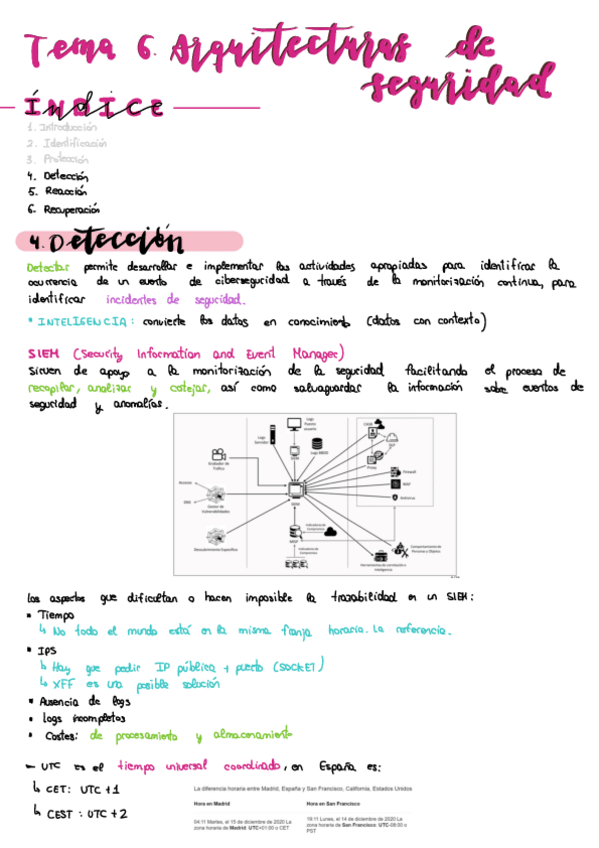 Tema 6. Arquitecturas de
seguridad
ÍNDICE
1. Introducción
2. Identificación
3. Protección
4. Detección
5. Reacción
6. Recuperación
4. Detección
Detectar permite desarrollar e implementar las actividades apropiadas para identificar la
ocurrencia de un evento de ciberseguridad a través de la monitorización continua, para
identificar incidentes de seguridad.
* INTELIGENCIA: convierte los datos en conocimiento (datos con contexto)
SIEM (Security Information and Event Manager)
Sirven de apoyo a la monitorización de la seguridad facilitando el proceso de
recopilar, analizar y cotejar, así como salvaguardar la información sobre eventos de
seguridad y anomalías.
Logs
Puesto
usuario
Logs
Servidor
Logs BBDD
Proxy
Firewall
WAF
Antivirus
Gestor de
Vulnerabilidades
Descubrimiento Específico
MISP
Indicadores de
Compromiso
Comportamiento de
Personas y Objetos
Herramientas de correlación e
Inteligencia
Los aspectos que dificultan o hacen imposible la trazabilidad en un SIEM:
• Tiempo
↳ No todo el mundo está en la misma franja horaria. La referencia.
• IPS
↳ Hay que pedir IP pública + puerto (SOCKET)
↳ XFF es una posible solución
• Ausencia de logs
• Logs incompletos
• Costes: de procesamiento y almacenamiento
– UTC es el tiempo universal coordinado, en España es:
↳ CET: UTC +1
↳ CEST : UTC +2
La diferencia horaria entre Madrid, España y San Francisco, California, Estados Unidos
Hora en Madrid
Hora en San Francisco
04:11 Martes, el 15 de diciembre de 2020 La
zona horaria de Madrid: UTC+01:00 o CET
19:11 Lunes, el 14 de diciembre de 2020 La
zona horaria de San Francisco: UTC-08:00 o
PST